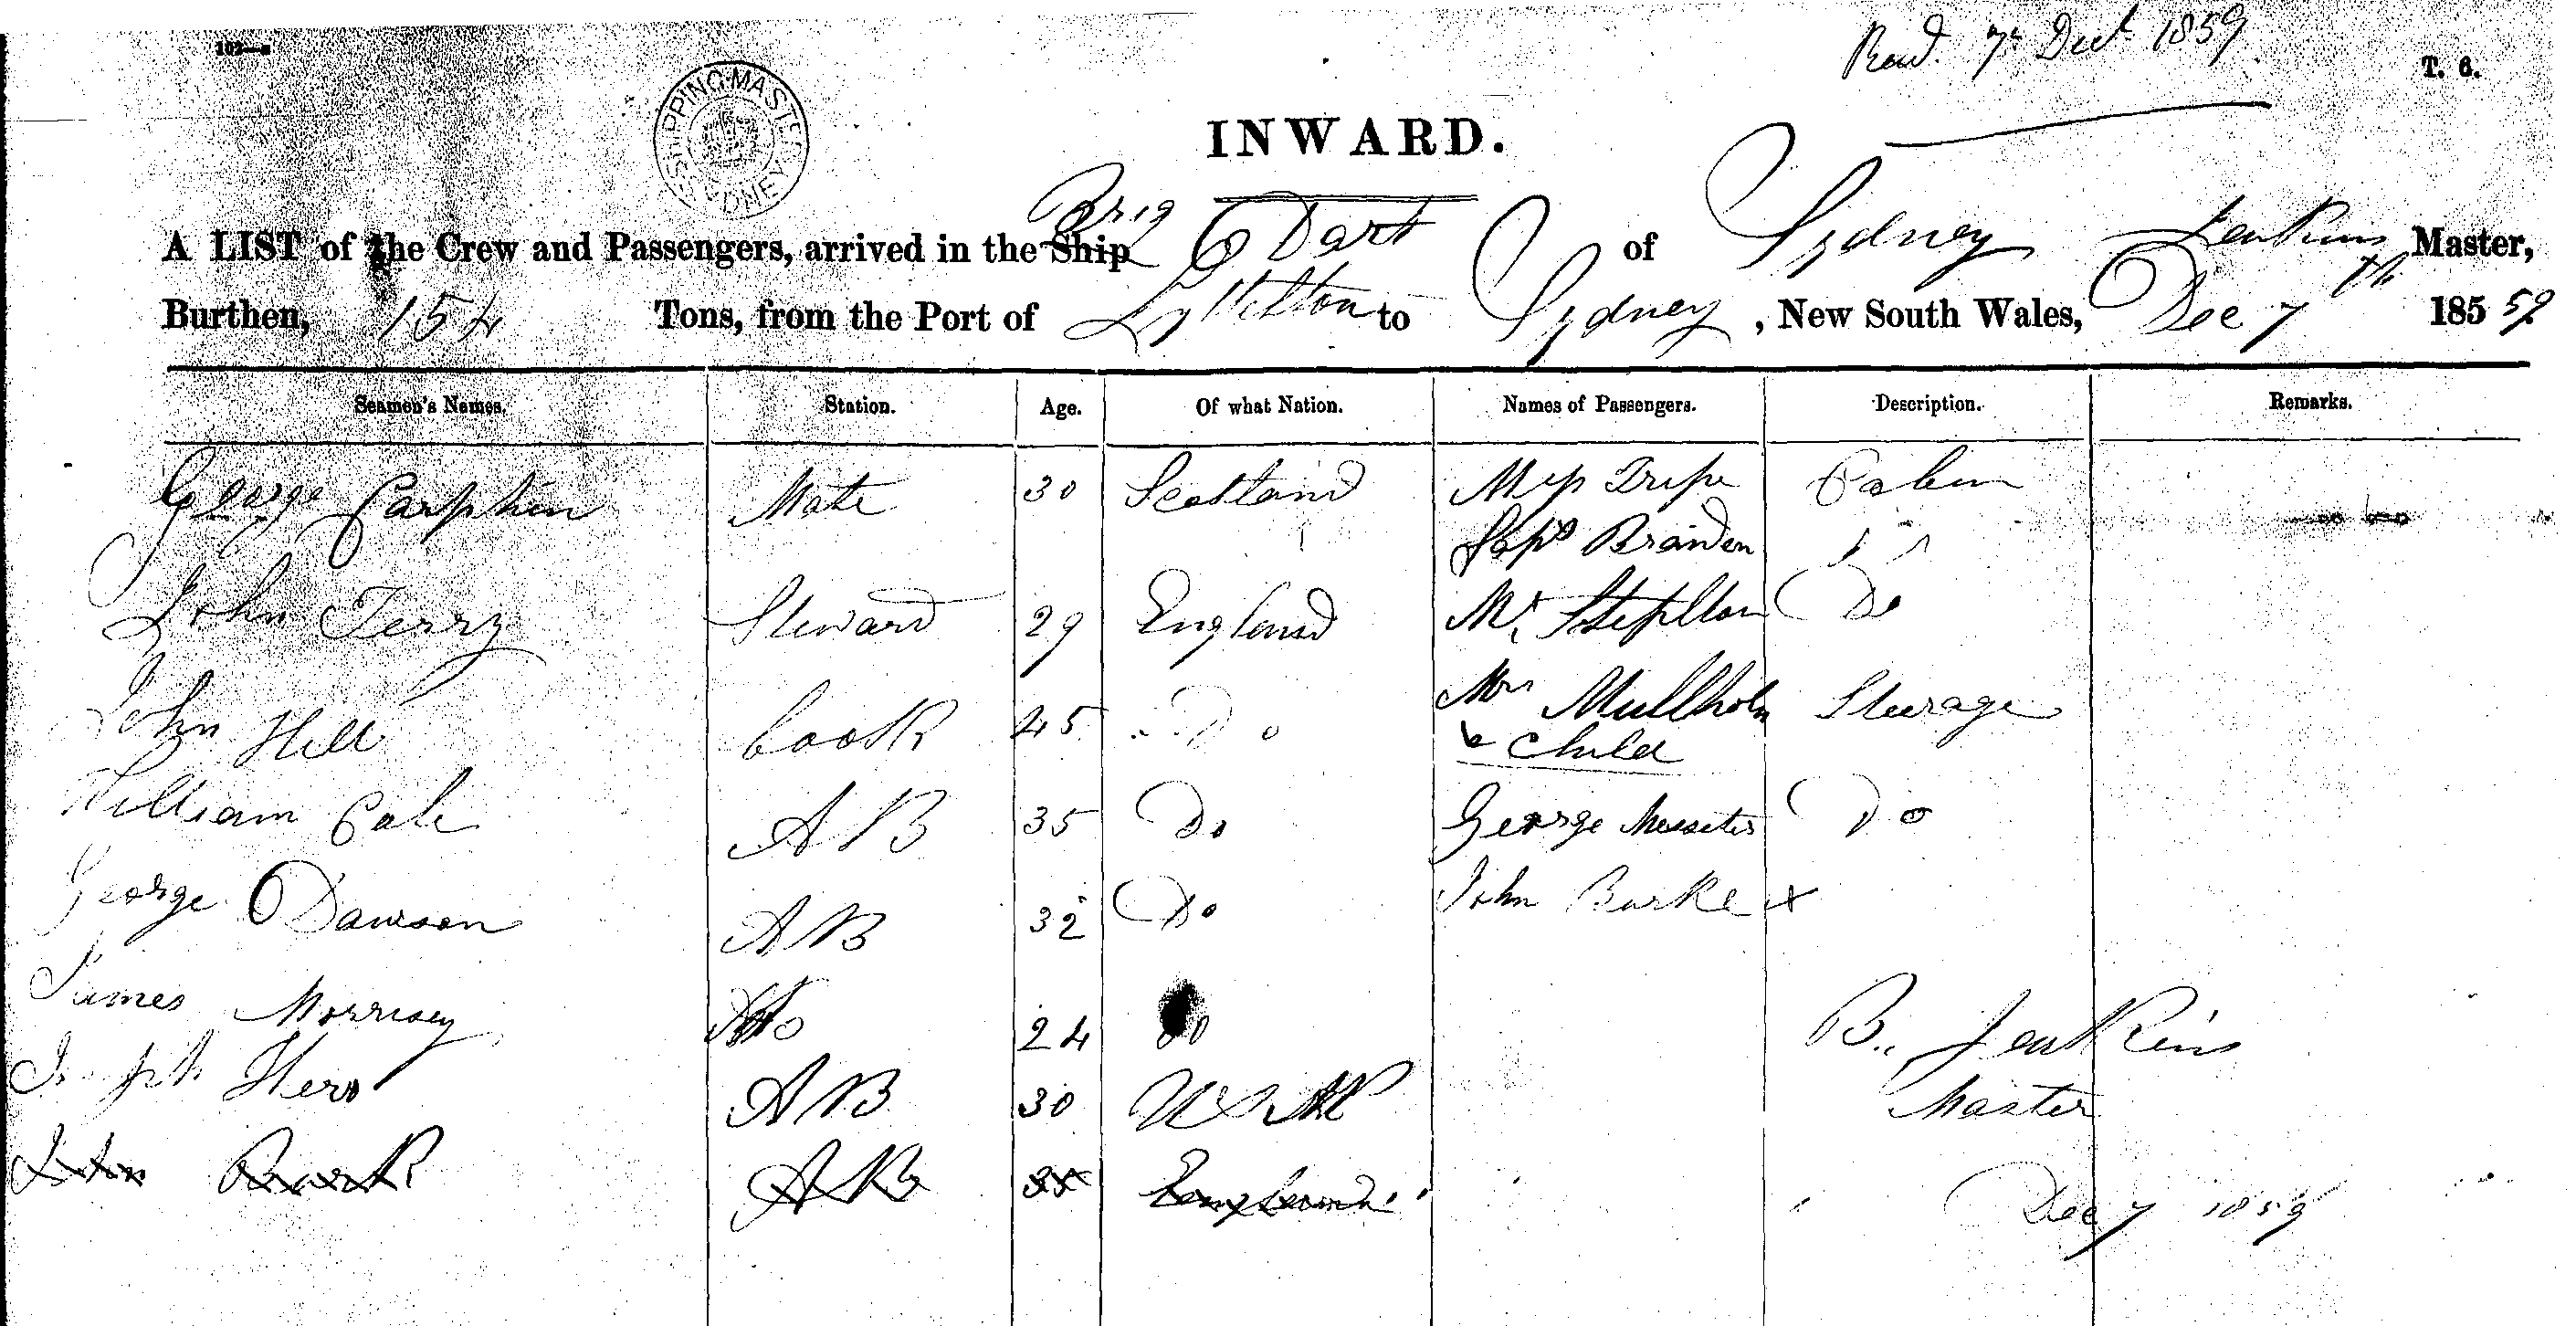 102—a
Recd. 7th Dect 1859
T. 6.
SHIPPING MASTER SYDNEY
INWARD.
A LIST of the Crew and Passengers, arrived in the Ship Brig Dart of Sydney Jenkins Master,
Burthen, 154 Tons, from the Port of Lyttelton to Sydney, New South Wales, Dec 7th 185 59
Seamen's Names. Station. Age. Of what Nation. Names of Passengers. Description. Remarks.
George Carphin Mate 30 Scotland Miss Tripe Cabin
Capt Branden
John Terry Steward 29 England Mr Do
John Hill Cook 45 Do Mrs Steerage
& Child
William Cale A B 35 Do George Do
George Dawson A B 32 Do John Burke +
James Morrisey 24 Do
Joseph Hero A B 30
John Burk A B 35 England
B. Jenkins
Master
Dec 7 1859